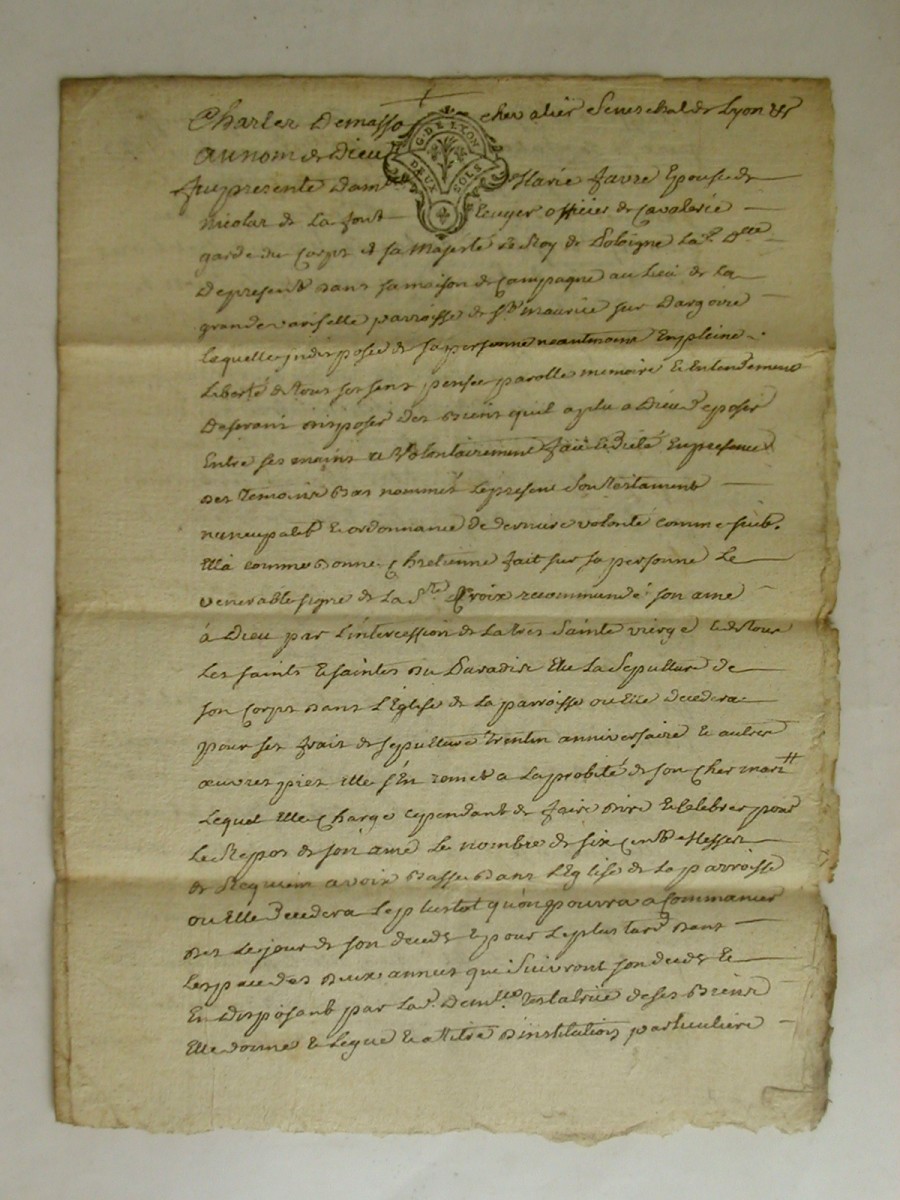 Charles Demasso chevalier Seneschal de Lyon &c
G. DE LYON
DEUX SOLS
au nom de Dieu
fut presente dam Marie favre Epouse de
nicolas de La font Ecuyer officier de Cavalerie
garde du Corps de sa Majesté Le Roy de Pologne La d.
De present dans sa maison de Campagne au Lieu de La
grande variselle parroisse de st maurice sur Dargoire
Laquelle indisposée de sa personne neantmoins En pleine
Liberté de tous ses sens pensée parolle memoire & Entendement
Desirant disposer des biens quil a plu a Dieu deposer
Entre ses mains a Volontairement fait & dicté En presence
des temoins bas nommés Le present son testament
nuncupatif & ordonnance de derniere volonté comme suit.
Ella comme bonne Chretienne fait sur sa personne Le
venerable signe de La Ste Croix recommandé son ame
à Dieu par L'intercession de La tres Sainte vierge & de tous
Les saints & saintes du Paradis Elu La Sepulture de
son Corps dans L'Eglise de La parroisse ou Elle decedera
pour ses frais de sepulture trentin anniversaire & autres
œuvres pies Elle s'En remet a La probité de son Cher mari
Lequel Elle Charge cependant de faire dire & Celebrer pour
Le Repos de son ame Le nombre de six Cent Messes
de Requiem a voix basse dans L'Eglise de La parroisse
ou Elle decedera Le plustot qu'on pourra a Commancer
des Le jour de son deces & pour Le plus tard dans
L'espace des deux années qui suivront son deces &
En disposant par La d. Demlle testatrice de ses biens
Elle donne & Legue & a titre d'institution particuliere